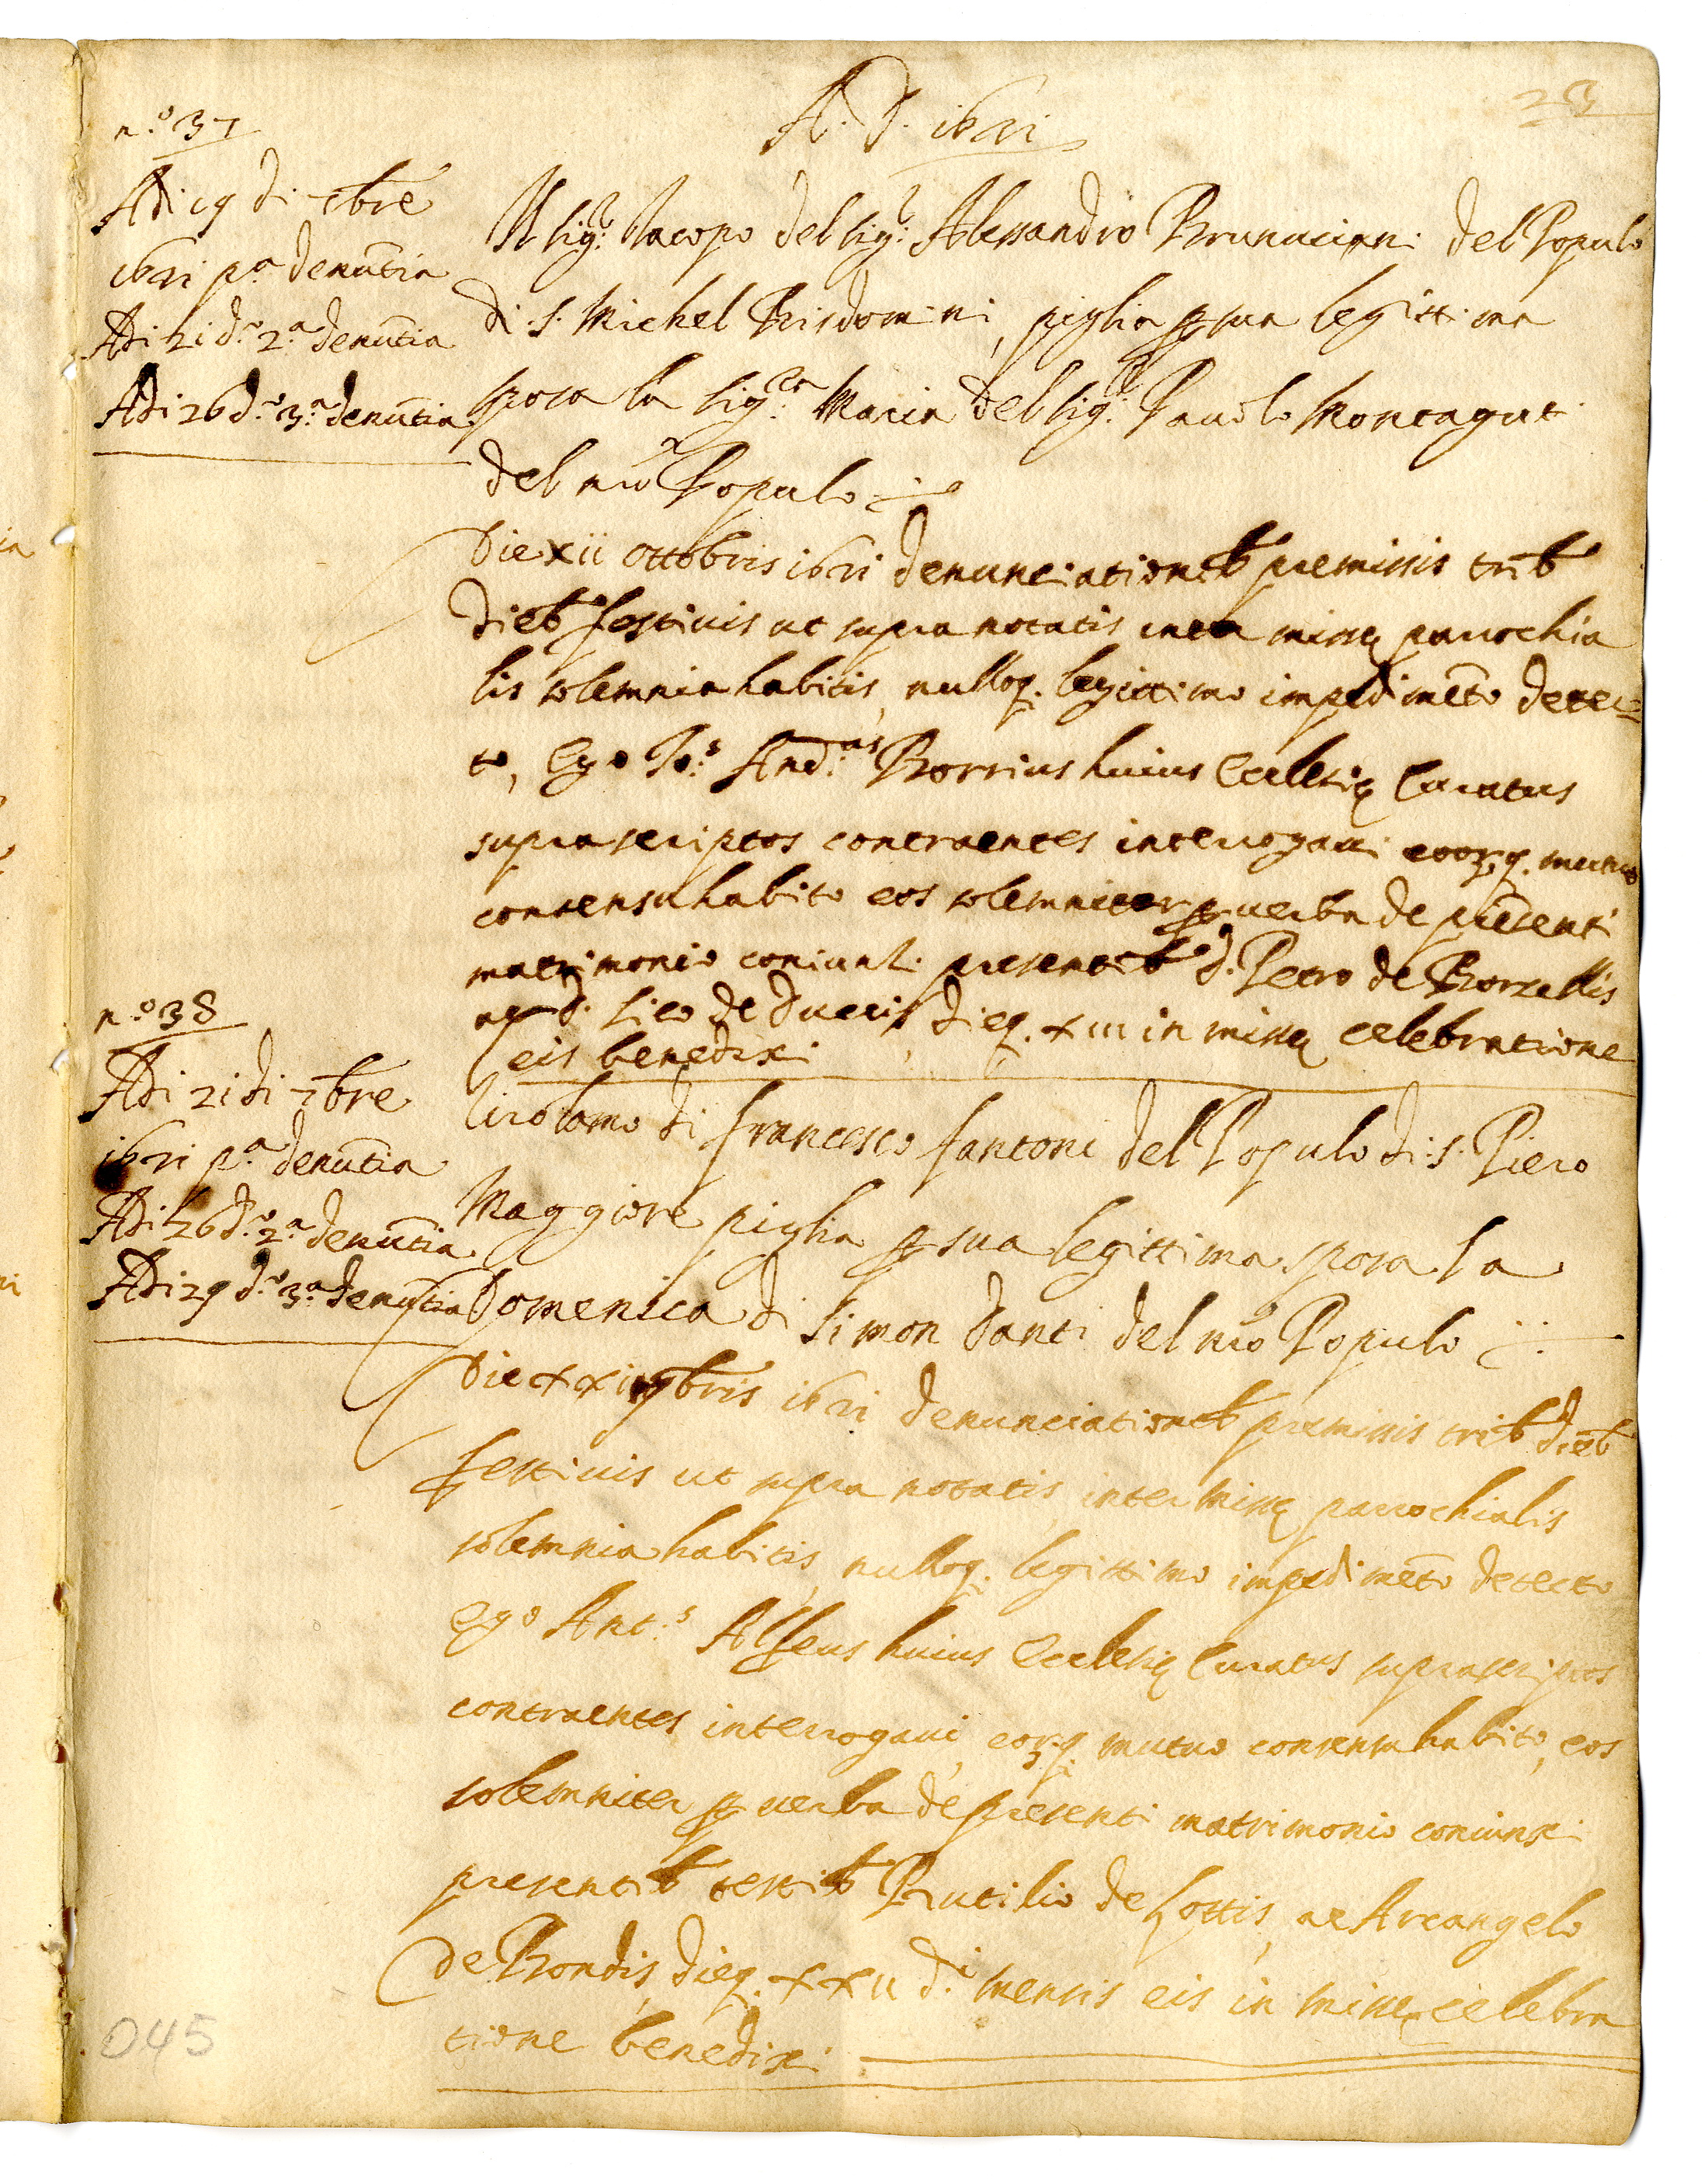 23
A. D. 1621
n.º 37
Adi 19 di 7bre
1621 p.ª denũtia
Adi 21 d.º 2.ª denũtia
Adi 26 d.º 3.ª denũtia
Il sig.r Iacopo del sig.r Alessandro Brunacini del Populo
di S. Michel Bisdomini, piglia p sua legittima
sposa la sig.ra Maria del sig.r Pauolo Montaguti
del nrõ Populo
Die xii ottobris 1621 denunciationib premissis trib
dieb festiuis ut supra notatis inter missę parrochia
lis solemnia habitis, nulloq. legittimo impedimẽto detec=
to, Ego Jo:s And:as Borrius huius Ecclesię Curatus
suprascriptos contraentes interrogaui eorq. mutuo
consensu habito eos solemniter p uerba de presenti
matrimonio coniunxi presentib d. Petro de
ac d. Leo de Duccis, dieq. xiii in missę celebratione
eis benedixi
n.º 38
Adi 21 di 7bre
1621 p.ª denũtia
Adi 26 d.º 2.ª denũtia
Adi 29 d.º 3.ª denũtia
Girolamo di Francesco Fantoni del Populo di S. Piero
Maggiore piglia p sua legittima sposa la
Domenica di Simon Danti del nrõ Populo
Die xxi 9bris 1621 denunciationib premissis trib dieb
festiuis ut supra notatis, inter missę parrochialis
solemnia habitis, nulloq. legittimo impedimẽto detecto
ego Ant:s Alfeus huius Ecclesię Curatus suprascriptos
contraentes interrogaui, eorq. mutuo consensu habito, eos
solemniter p uerba de presenti matrimonio coniunxi
presentib testib Rutilio de Lottis, ac Arcangelo
de Bondis, dieq. xxii d.i mensis eis in missę celebra
tione benedixi
045